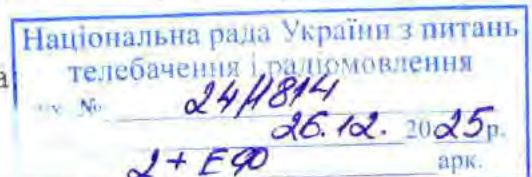 Національна рада України з питань
телебачення і радіомовлення
а
№ 24/1814
26.12. 2025р.
2+ЕФ арк.